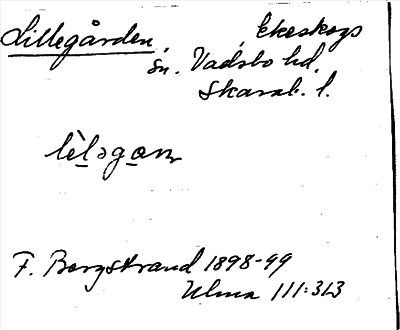 Lillegården, Ekeskogs
sn. Vadsbo hd.
Skarab. l.
lèl̠əga̠nn
F. Bergstrand 1898-99
Ulma 111:313